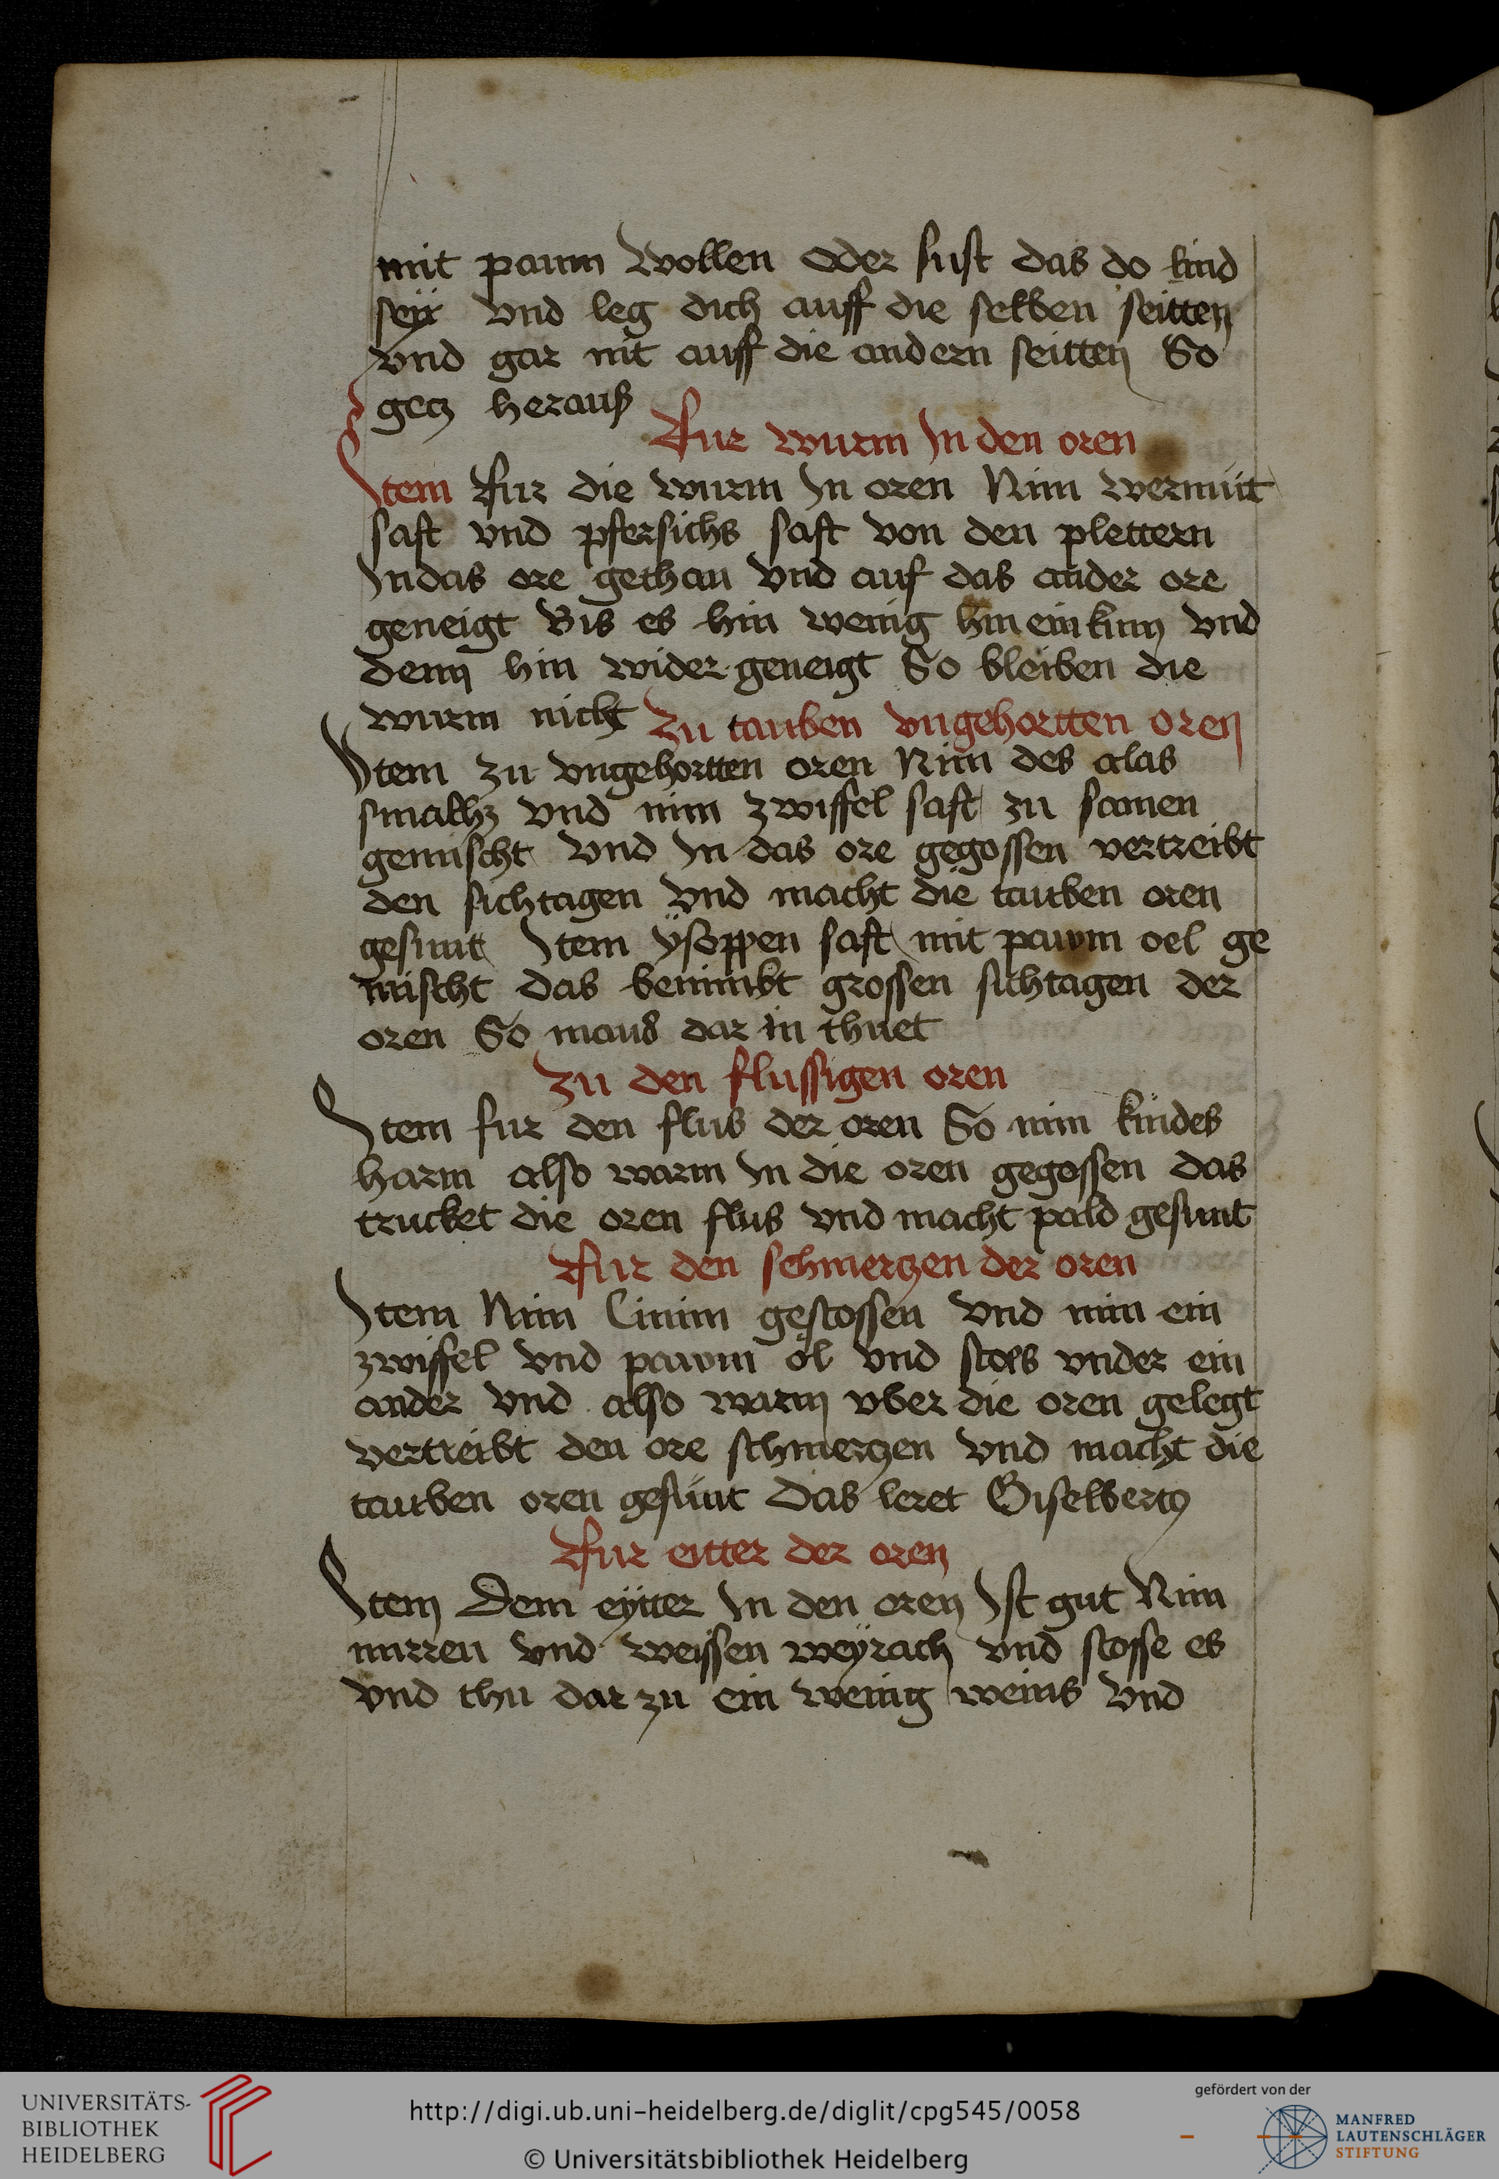 mit paum wollen oder sust das do lind
seÿ vnd leg dich auff die selben seitten
vnd gar nit auff die andern seitten So
getz herauß
Fur wurm In den oren
Item Fur die wurm In oren Nim wermüt
saft vnd pfersichs saft von den plettern
In das ore gethan vnd auf das ander ore
geneigt Bis es hin wenig hin ein kum vnd
denn hin wider geneigt So bleiben die
wurm nicht
Zu tauben vngehortten oren
Item zu vngehortten oren Nim des alas
smaltz vnd nim zwiffel saft zu samen
gemischt vnd In das ore gegossen vertreibt
den sichtagen vnd macht die tauben oren
gesunt Item ÿsoppen saft mit pawm oel ge
mischt das benimbt grossen sichtagen der
oren So mans dar in thuet
Zu den flussigen oren
Item fur den flus der oren So nim kindes
harm also warm In die oren gegossen das
trucket die oren flus vnd macht pald gesunt
Fur den schmertzen der oren
Item Nim Cinim gestossen vnd nim ein
zwiffel vnd pawm öl vnd stos vnder ein
ander vnd also warm vber die oren gelegt
vertreibt den ore schmertzen vnd macht die
tauben oren gesunt Das leret Giselbertz
Fur eitter der oren
Item Dem eÿtter In den oren Ist gut Nim
mirren vnd weissen weÿrach vnd stosse es
vnd thu dar zu ein wenig weins vnd
UNIVERSITÄTS-
BIBLIOTHEK
HEIDELBERG
http://digi.ub.uni-heidelberg.de/diglit/cpg545/0058
© Universitätsbibliothek Heidelberg
gefördert von der
MANFRED
LAUTENSCHLÄGER
STIFTUNG